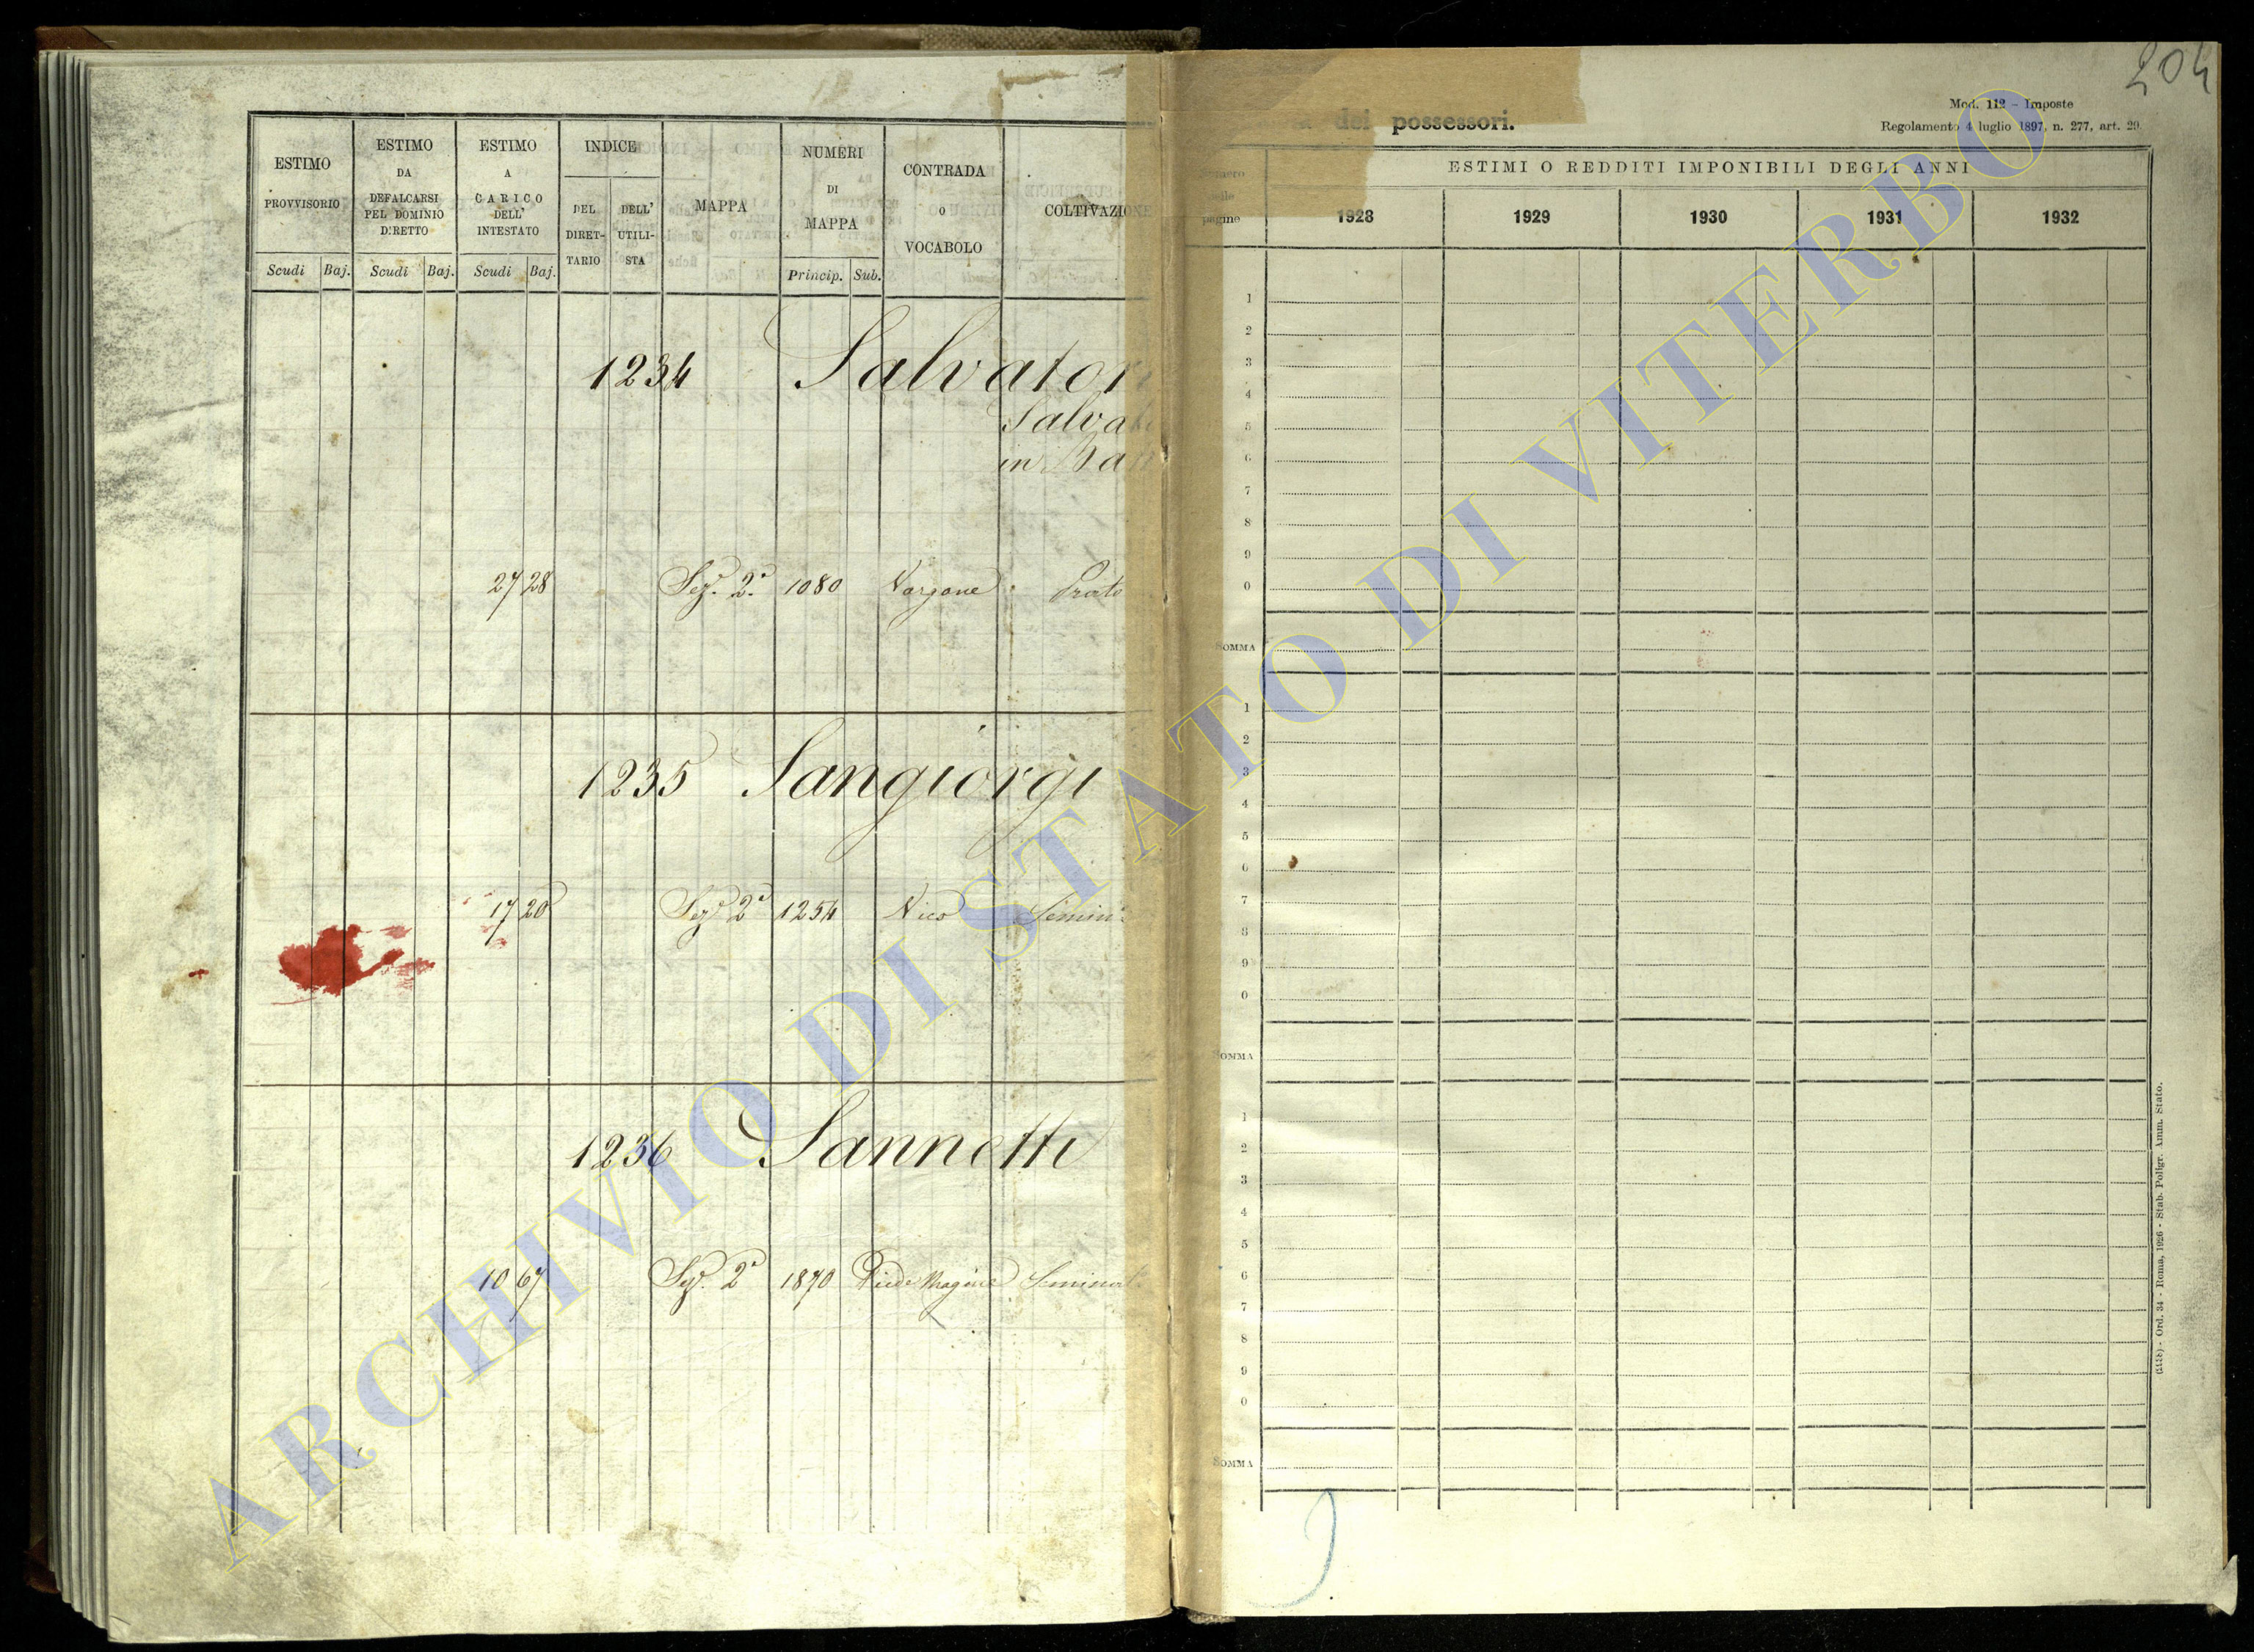 ESTIMO PROVVISORIO
ESTIMO DA DEFALCARSI PEL DOMINIO DIRETTO
ESTIMO A CARICO DELL' INTESTATO
INDICE
DEL DIRET-TARIO
DELL' UTILI-STA
MAPPA
NUMERI DI MAPPA
CONTRADA O VOCABOLO
COLTIVAZIONE
Scudi Baj. Scudi Baj. Scudi Baj. Princip. Sub.
1234 Salvator
Salvat
in
27 28 Sez. 2ª 1080 Vargone Prato
1235 Sangiorgi
17 20 Sez. 2ª 1254 Vico Semin
1236 Sannetti
10 67 Sez. 2ª 1870 Seminat
204
Mod. 112 - Imposte
Regolamento 4 luglio 1897, n. 277, art. 29.
dei possessori.
Numero delle pagine
ESTIMI O REDDITI IMPONIBILI DEGLI ANNI
1928 1929 1930 1931 1932
1
2
3
4
5
6
7
8
9
0
SOMMA
1
2
3
4
5
6
7
8
9
0
SOMMA
1
2
3
4
5
6
7
8
9
0
SOMMA
- Ord. 34 - Roma, 1926 - Stab. Poligr. Amm. Stato.
ARCHIVIO DI STATO DI VITERBO